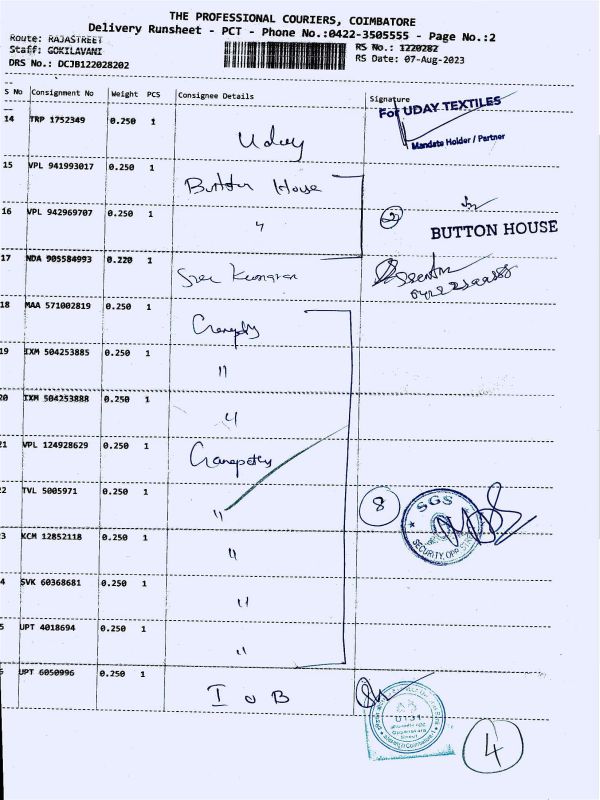 THE PROFESSIONAL COURIERS, COIMBATORE
Delivery Runsheet - PCT - Phone No.:0422-3505555 - Page No.:2
Route: RAJASTREET
Staff: GOKILAVANI
DRS No.: DCJB122028202
RS No.: 1220282
RS Date: 07-Aug-2023
S No Consignment No Weight PCS Consignee Details Signature
14 TRP 1752349 0.250 1 Uday
For UDAY TEXTILES
Mandate Holder / Partner
15 VPL 941993017 0.250 1 Button House
16 VPL 942969707 0.250 1 "
2
BUTTON HOUSE
17 NDA 905584993 0.220 1 Sree Kumaran
18 MAA 571002819 0.250 1
19 IXM 504253885 0.250 1 "
20 IXM 504253888 0.250 1 "
21 VPL 124928629 0.250 1 Ganapathy
2 TVL 5005971 0.250 1 "
8
SGS
SECURITY, OPP
3 KCM 12852118 0.250 1 "
4 SVK 60368681 0.250 1 "
5 UPT 4018694 0.250 1 "
6 UPT 6050996 0.250 1 I O B
0131
4